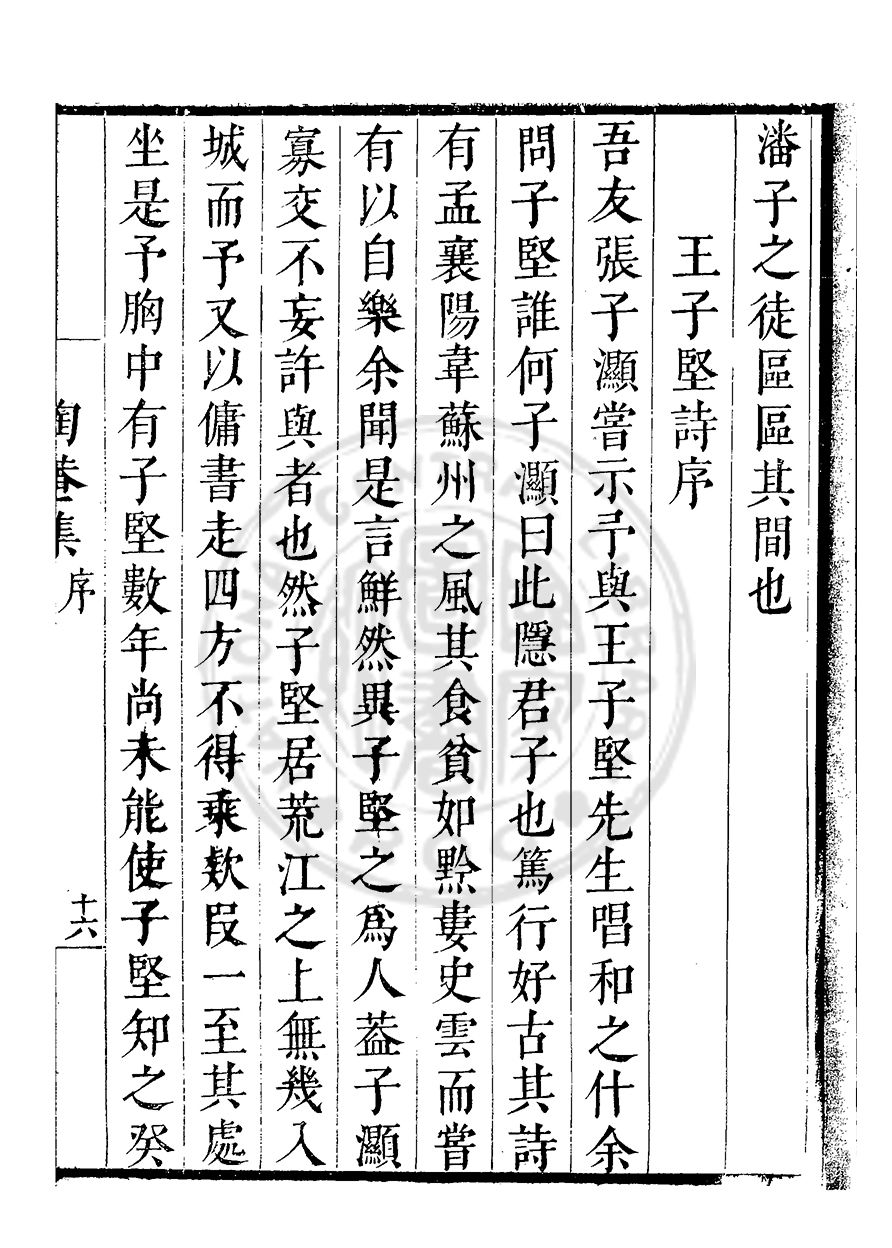 潘子之徒區區其間也
王子堅詩序
吾友張子灝嘗示予與王子堅先生唱和之什余
問子堅誰何子灝曰此隱君子也篤行好古其詩
有孟襄陽韋蘇州之風其食貧如黔婁史雲而嘗
有以自樂余聞是言鮮然異子堅之爲人葢子灝
寡交不妄許與者也然子堅居荒江之上無幾入
城而予又以傭書走四方不得乘欵段一至其處
坐是予胸中有子堅數年尚未能使子堅知之癸
陶菴集
序
十六